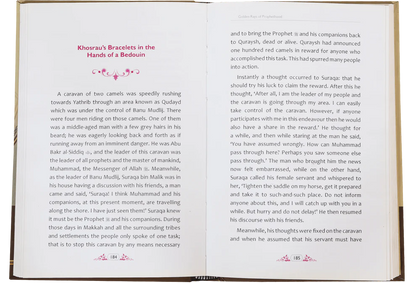 Khosrau's Bracelets in the
Hands of a Bedouin
A caravan of two camels was speedily rushing
towards Yathrib through an area known as Qudayd
which was under the control of Banu Mudlij. There
were four men riding on those camels. One of them
was a middle-aged man with a few grey hairs in his
beard; he was eagerly looking back and forth as if
running away from an imminent danger. He was Abu
Bakr al Siddiq ؓ, and the leader of this caravan was
the leader of all prophets and the master of mankind,
Muhammad, the Messenger of Allah ﷺ. Meanwhile,
as the leader of Banu Mudlij, Suraqa bin Malik was in
his house having a discussion with his friends, a man
came and said, "Suraqa! I think Muhammad and his
companions, at this present moment, are travelling
along the shore. I have just seen them!" Suraqa knew
it must be the Prophet ﷺ and his companions. During
those days in Makkah and all the surrounding tribes
and settlements the people only spoke of one task;
that is to stop this caravan by any means necessary
184
and to bring the Prophet ﷺ and his companions back
to Quraysh, dead or alive. Quraysh had announced
one hundred red camels in reward for anyone who
accomplished this task. This had spurred many people
into action.
Instantly a thought occurred to Suraqa: that he
should try his luck to claim the reward. After this he
thought, 'After all, I am the leader of my people and
the caravan is going through my area. I can easily
take control of the caravan. However, if anyone
participates with me in this endeavour then he would
also have a share in the reward.' He thought for
a while, and then while staring at the man he said,
'You have assumed wrongly. How can Muhammad
pass through here? Perhaps you saw someone else
pass through.' The man who brought him the news
now felt embarrassed, while on the other hand,
Suraqa called his female servant and whispered to
her, 'Tighten the saddle on my horse, get it prepared
and take it to such-and-such place. Do not inform
anyone about this, and I will catch up with you in a
while. But hurry and do not delay!' He then resumed
his discourse with his friends.
Meanwhile, his thoughts were fixed on the caravan
and when he assumed that his servant must have
185